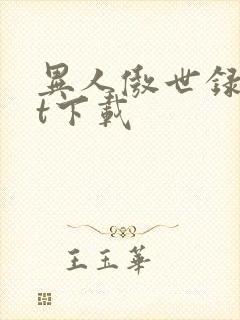 異人傲世録
t下載
王玉華